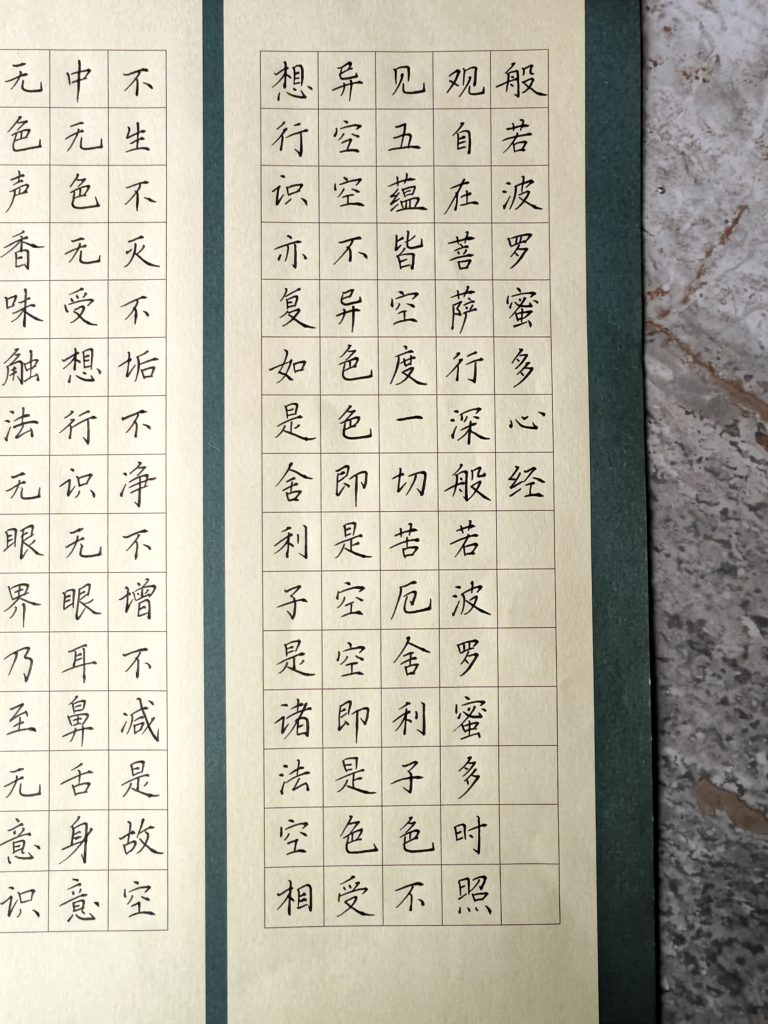 般若波罗蜜多心经
观自在菩萨行深般若波罗蜜多时照
见五蕴皆空度一切苦厄舍利子色不
异空空不异色色即是空空即是色受
想行识亦复如是舍利子是诸法空相
不生不灭不垢不净不增不减是故空
中无色无受想行识无眼耳鼻舌身意
无色声香味触法无眼界乃至无意识